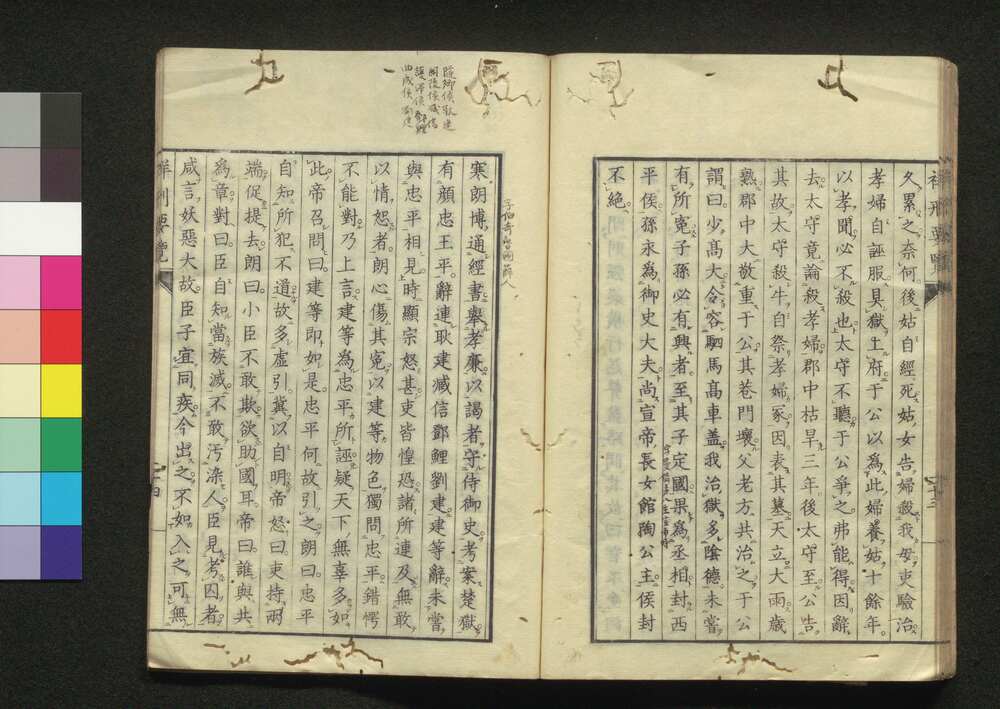 久累之奈何後姑自經死姑女告婦殺我母吏驗治
孝婦自誣服具獄上府于公以爲此婦養姑十餘年
以孝聞必不殺也太守不聽于公爭之弗能得因辭
去太守竟論殺孝婦郡中枯旱三年後太守至公告
其故太守殺牛自祭孝婦冢因表其墓天立大雨歲
熟郡中大敬重于公其巷門壞父老方共治之于公
謂曰少高大令容駟馬高車盖我治獄多陰德未嘗
有所寃子孫必有興者至其子定國果爲丞相封西
平侯孫永爲御史大夫尚宣帝長女館陶公主侯封
不絶
隧鄉侯耿建
朗陵侯臧信
護澤侯鄧鯉
曲成侯劉建
寒朗博通經書舉孝廉以謁者守侍御史考案楚獄
有顔忠王平辭連耿建臧信鄧鯉劉建建等辭未嘗
與忠平相見時顯宗怒甚吏皆惶恐諸所連及無敢
以情恕者朗心傷其寃以建等物色獨問忠平錯愕
不能對乃上言建等為忠平所誣疑天下無辜多如
此帝召問曰建等即如是忠平何故引之朗曰忠平
自知所犯不道故多虚引冀以自明帝怒曰吏持兩
端促提去朗曰小臣不敢欺欲助國耳帝曰誰與共
爲章對曰臣自知當族滅不敢汚染人臣見考囚者
咸言妖惡大故臣子宜同疾今出之不如入之可無
祥刑要覽
十四